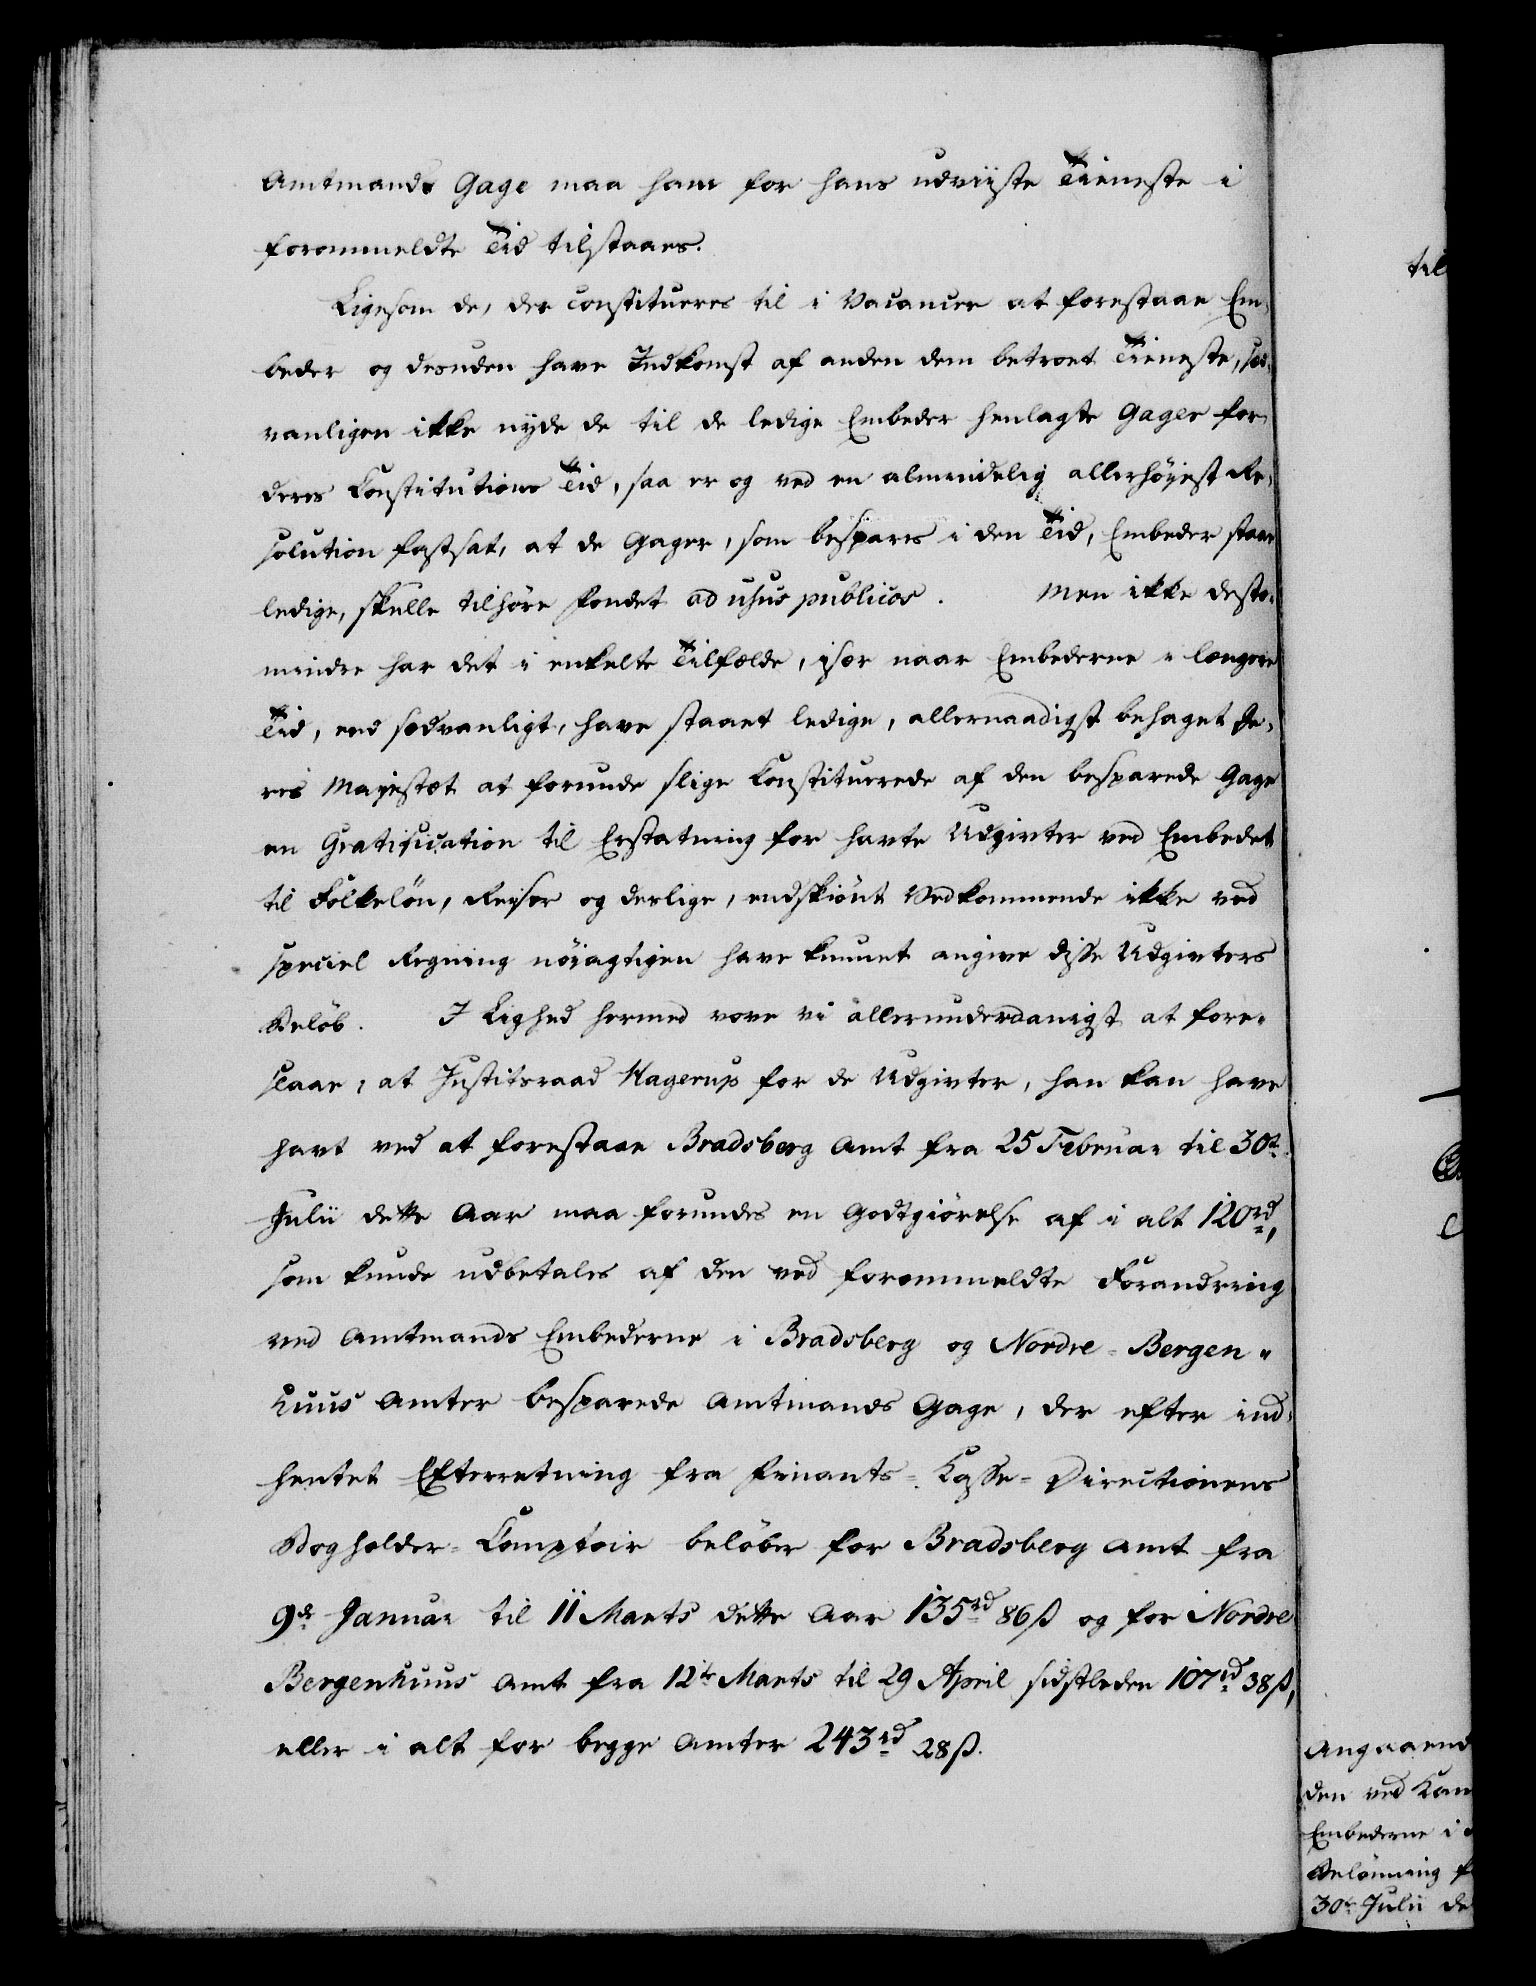 Amtmands Gage maa ham for hans udviiste Tieneste i
forommeldte Tid tilstaaes.
Ligesom de, der constitueres til i Vacancer at forestaae Em-
beder og desuden have Indkomst af anden dem betroet Tieneste, sæd-
vanligen ikke nyde de til de ledige Embeder henlagte Gager for
deres Constitutions Tid, saa er og ved en almindelig allerhøyest Re-
solution fastsat, at de Gager, som bespares i den Tid, Embeder staae
ledige, skulle tilhøre Fondet ad usus publicos. Men ikke desto-
mindre har det i enkelte Tilfælde, især naar Embederne i længere
Tid, end sædvanligt, have staaet ledige, allernaadigst behaget De-
res Majestæt at forunde slige Constituerede af den besparede Gage
en Gratification til Erstatning for havte Udgivter ved Embedet
til Folkeløn, Reiser og deslige, endskiønt Vedkommende ikke ved
speciel Regning nøiagtigen have kunnet angive disse Udgivters
Beløb. I Lighed hermed vove vi allerunderdanigst at fore-
slaae, at Justitsraad Hagerup for de Udgivter, han kan have
havt ved at forestaae Bradsberg Amt fra 25 Februar til 30te
Julii dette Aar maa forundes en Godtgiørelse af i alt 120 rd,
som kunde udbetales af den ved forommeldte Forandring
ved Amtmands Embederne i Bradsberg og Nordre-Bergen-
huus Amter besparede Amtmands Gage, der efter ind-
hentet Efterretning fra Finants-Casse-Directionens
Bogholder-Comptoir beløber for Bradsberg Amt fra
9de Januar til 11 Marts dette Aar 135 rd 86 ß og for Nordre
Bergenhuus Amt fra 12te Marts til 29 April sidstleden 107 rd 38 ß,
eller i alt for begge Amter 243 rd 28 ß.
til
Angaaend
den ved Kam
Embederne i
Belønning f
30te Julii de